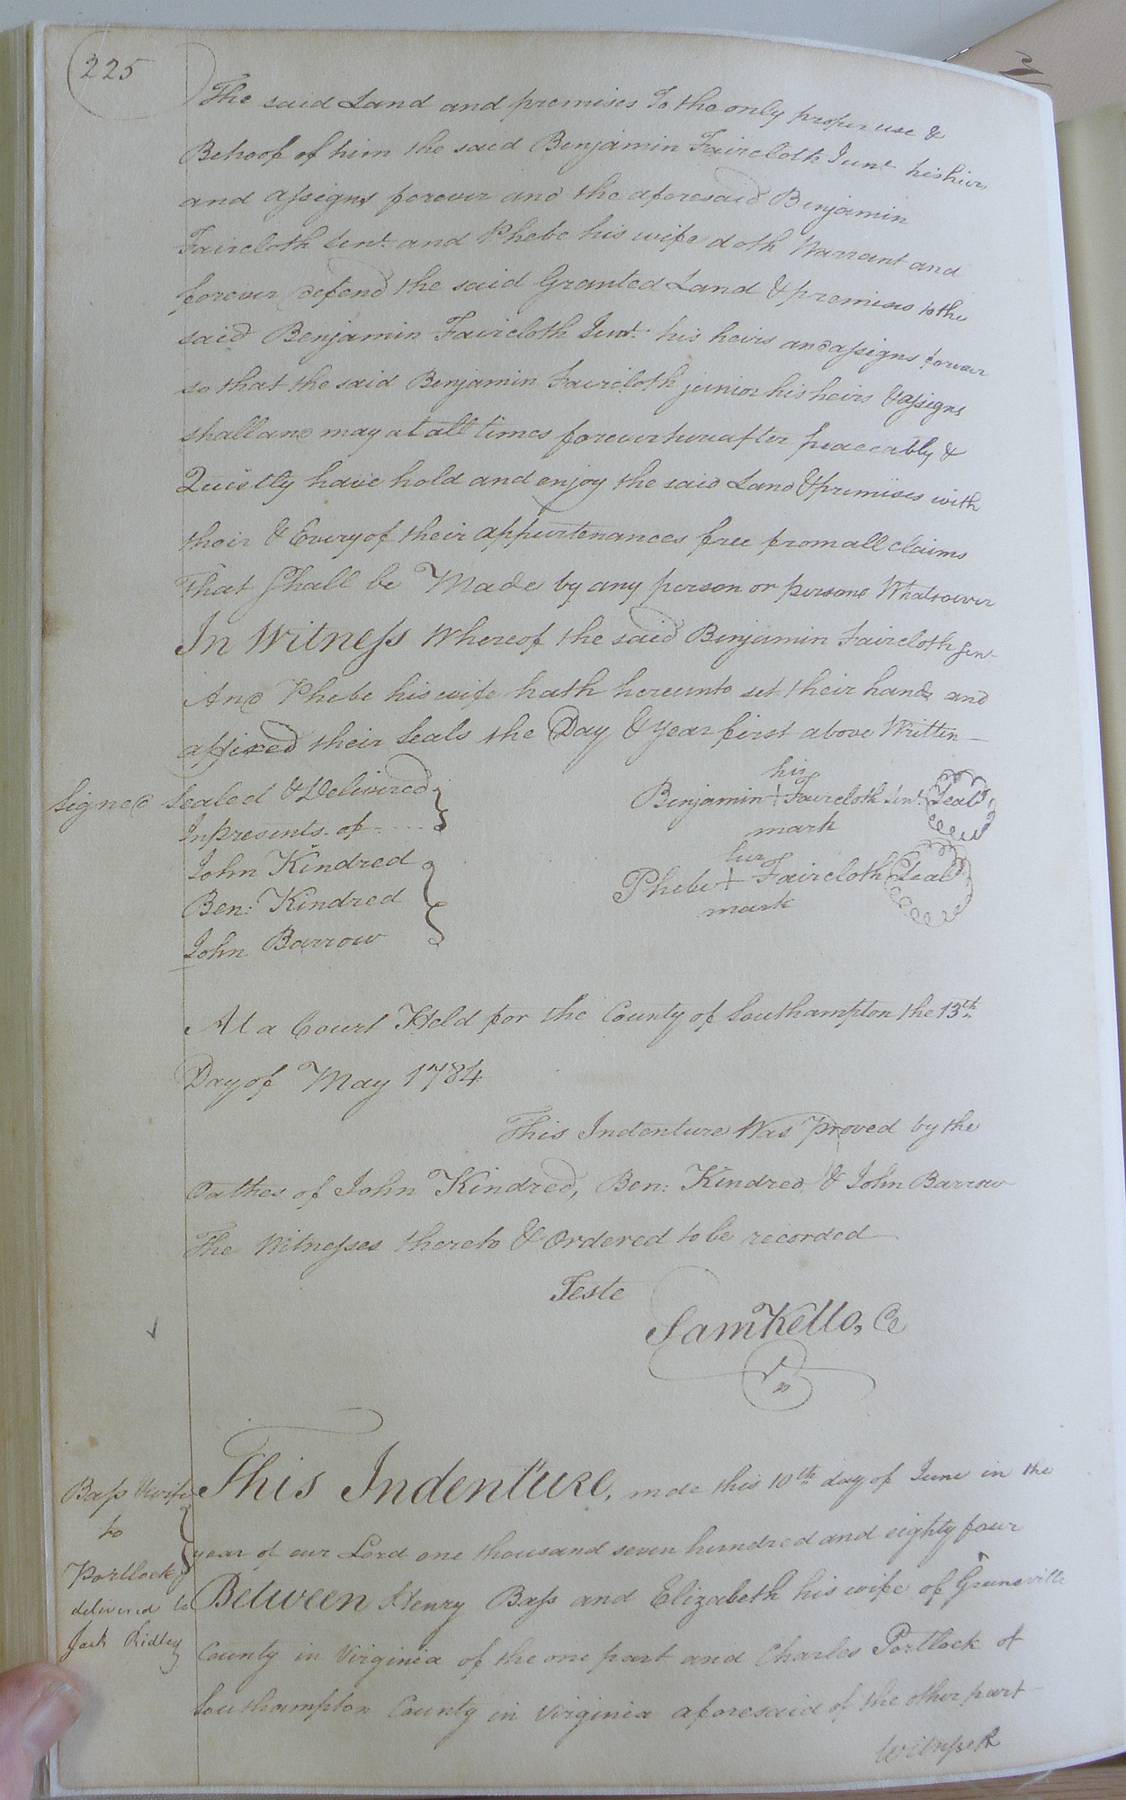 225
The said Land and premises To the only proper use &
Behoof of him the said Benjamin Faircloth Junr. his heirs
and assigns forever and the aforesaid Benjamin
Faircloth Senr. and Phebe his wife doth Warrant and
forever defend the said Granted Land & premises to the
said Benjamin Faircloth Junr. his heirs and assigns forever
so that the said Benjamin Faircloth junior his heirs & assigns
shall and may at all times forever hereafter peaceably &
Quietly have hold and enjoy the said Land & premises with
their & Every of their appurtenances free from all claims
That Shall be Made by any person or persons Whatsoever
In Witness Whereof the said Benjamin Faircloth Senr.
And Phebe his wife hath hereunto set their hands and
affixed their Seals the Day & Year first above Written
Signed Sealed & Delivered
In presents of
John Kindred
Ben: Kindred
John Barrow
his
Benjamin + Faircloth Senr. Seal
mark
her
Phebe + Faircloth Seal
mark
At a Court Held for the County of Southampton the 13th
Day of May 1784
This Indenture Was Proved by the
Oathes of John Kindred, Ben: Kindred & John Barrow
The Witnesses thereto & Ordered to be recorded
Teste
Sam Kello, Ce
Bass & wife
to
Portlock
delivered to
Jack Ridley
This Indenture, made this 10th day of June in the
year of our Lord one thousand seven hundred and eighty four
Between Henry Bass and Elizabeth his wife of Greensville
County in Virginia of the one part and Charles Portlock of
Southampton County in Virginia aforesaid of the other part
Witnesseth